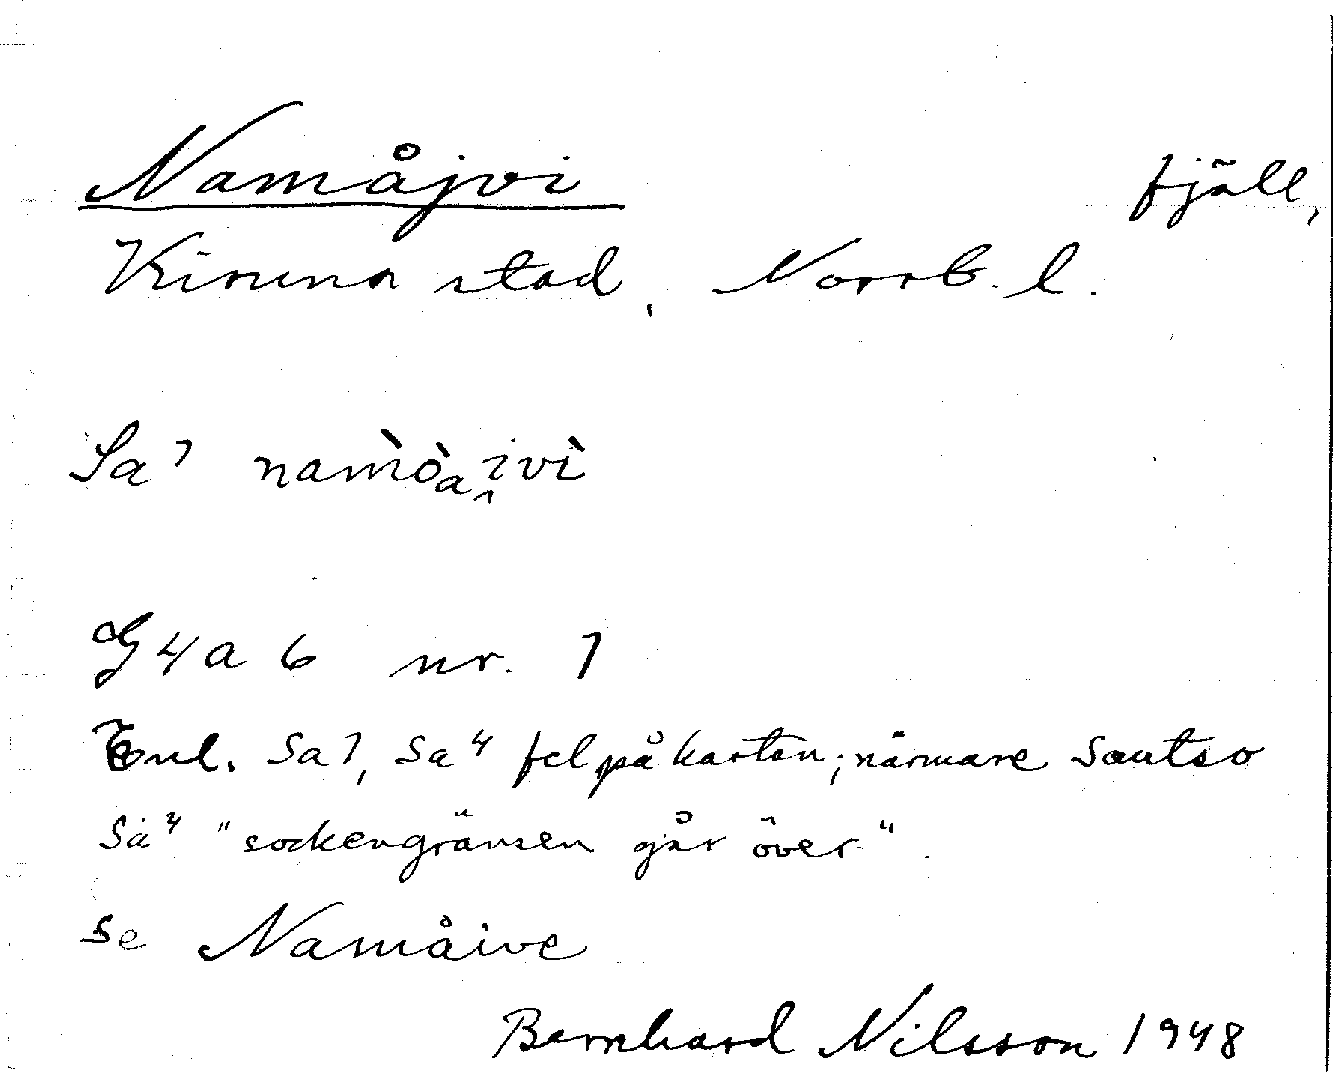 Namåjvi fjäll,
Kiruna stad, Norrb. l.
Sa 7 namòaivì
G 4 a 6 nr. 7
Enl. Sa 7, Sa 4 fel på kartan; närmare Sautso
Sa 4 "sockengränsen går över".
se Namåive
Bernhard Nilsson 1948